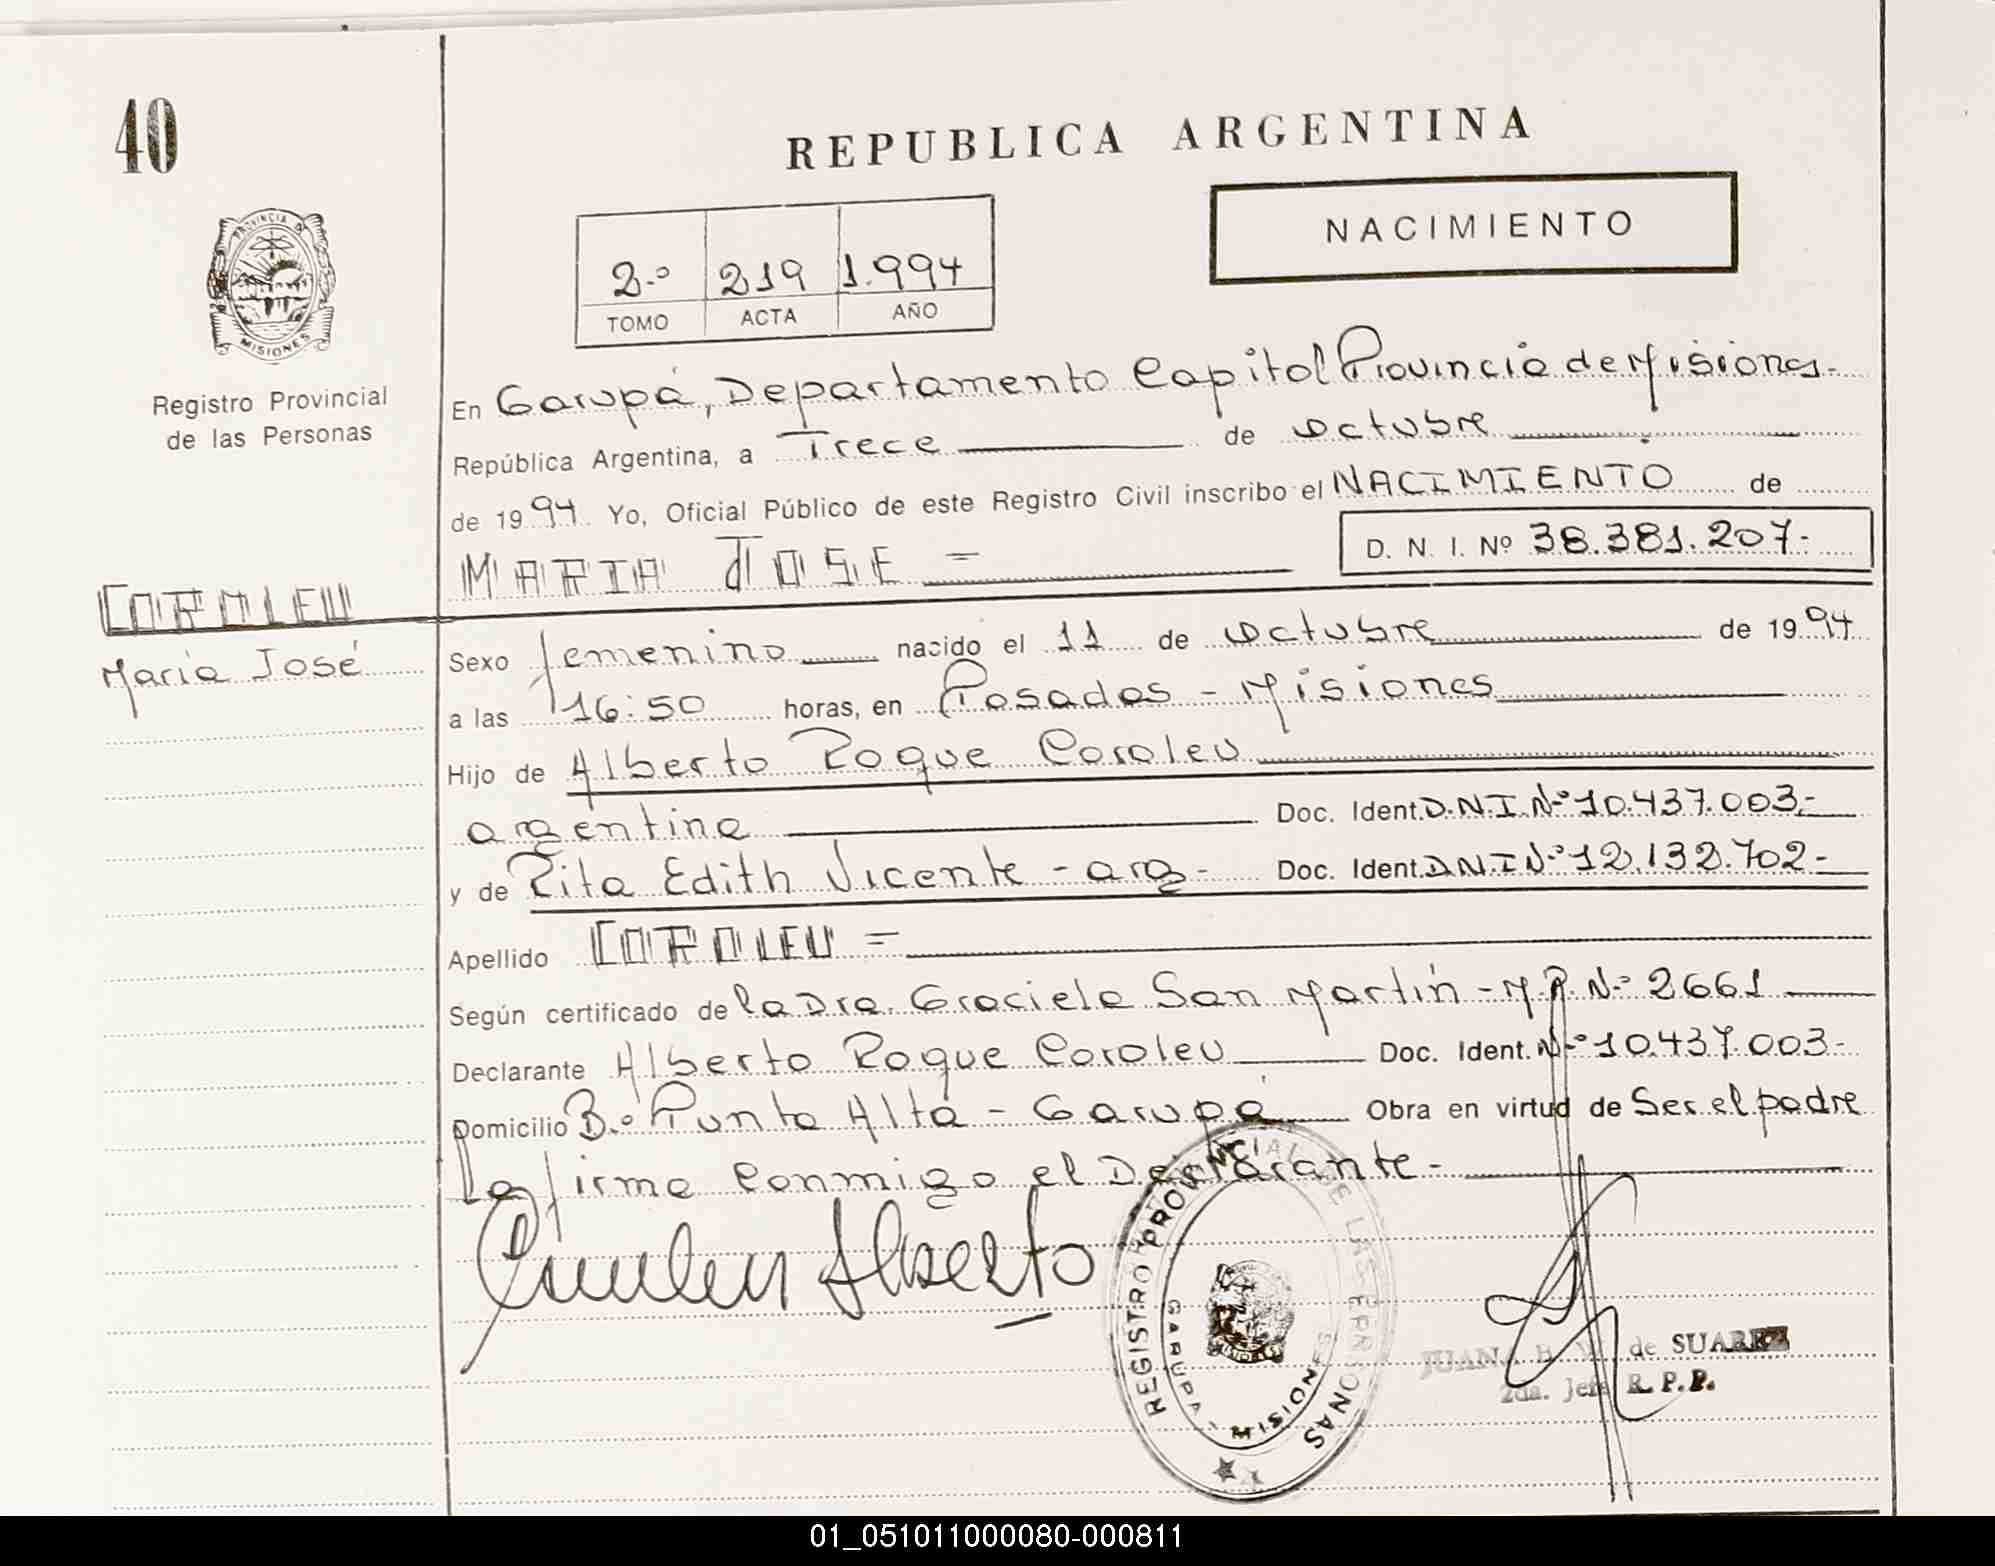 40
REPUBLICA ARGENTINA
PROVINCIA DE
MISIONES
Registro Provincial
de las Personas
2.º 219 1.994
TOMO ACTA AÑO
NACIMIENTO
En Garupá, Departamento Capital Provincia de Misiones.-
República Argentina, a Trece de octubre
de 1994 Yo, Oficial Público de este Registro Civil inscribo el NACIMIENTO de
MARIA JOSE =
D. N. I. Nº 38.381.207-
COROLEU
María José
Sexo femenino nacido el 11 de octubre de 1994
a las 16:50 horas, en Posadas - Misiones
Hijo de Alberto Roque Coroleu
argentina Doc. Ident. D.N.I. Nº 10.437.003.-
y de Rita Edith Vicente - arg - Doc. Ident. D.N.I Nº 12.132.702-
Apellido COROLEU =
Según certificado de la Dra. Graciela San Martín - M.P. Nº 2661
Declarante Alberto Roque Coroleu Doc. Ident. Nº 10.437.003-
Domicilio Bº Punta Alta - Garupá Obra en virtud de Ser el padre
La firma conmigo el Declarante-
Coroleu Alberto
REGISTRO PROVINCIAL DE LAS PERSONAS
GARUPA - MISIONES
JUANA H. V. de SUAREZ
2da. Jefe R. P. P.
01_051011000080-000811